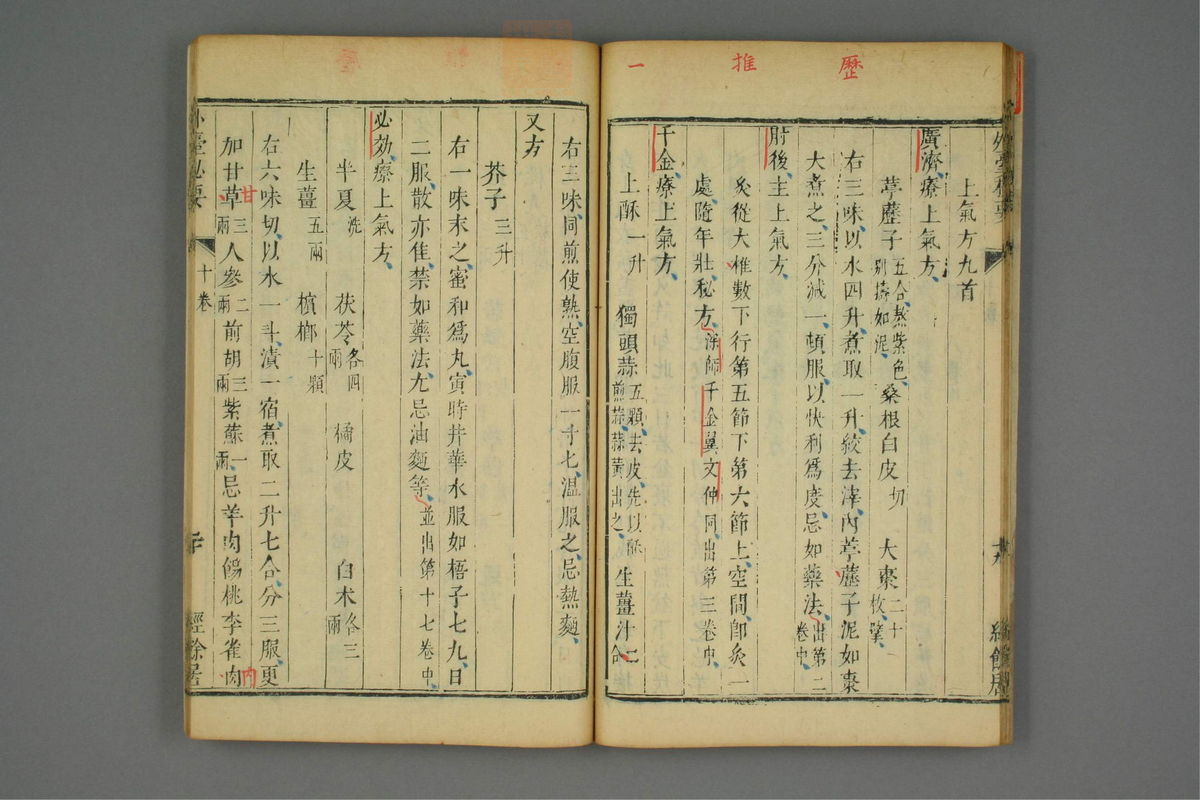 歷
推
一
外臺秘要
上氣方九首
廣濟療上氣方
葶藶子五合熬紫色別擣如泥桑根白皮切大棗二十枚擘
右三味以水四升煮取一升絞去滓內葶藶子泥如棗
大煮之三分減一頓服以快利爲度忌如藥法出第二卷中
肘後主上氣方
灸從大椎數下行第五節下第六節上空間卽灸一
處隨年壯秘方深師千金翼文仲同出第三卷中
千金療上氣方
上酥一升獨頭蒜五顆去皮先以酥煎蒜蒜黃出之生薑汁二合
右三味同煎使熟空腹服一寸匕溫服之忌熱麵
又方
芥子三升
右一味末之蜜和爲丸寅時井華水服如梧子七丸日
二服散亦佳禁如藥法尤忌油麵等並出第十七卷中
必効療上氣方
半夏洗茯苓各四兩橘皮白术各三兩
生薑五兩檳榔十顆
右六味切以水一斗漬一宿煮取二升七合分三服更
加甘草三兩人參二兩前胡三兩紫蘇一兩忌羊肉餳桃李雀肉
甘
內
外臺秘要
十卷
二十
經餘居